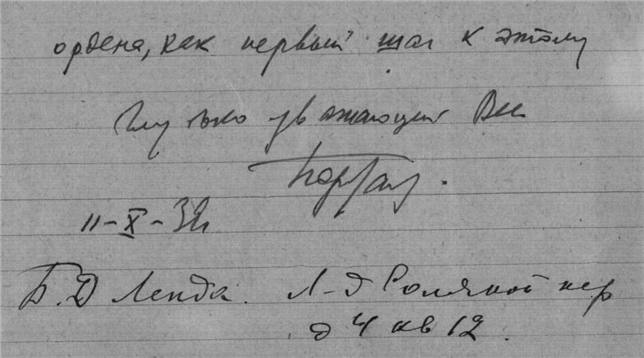 ордена, как первый шаг к этому
Глубоко уважающий Вас
11-X-32
Б. Д Ленда. Л-д Соляной пер
д 4 кв 12.